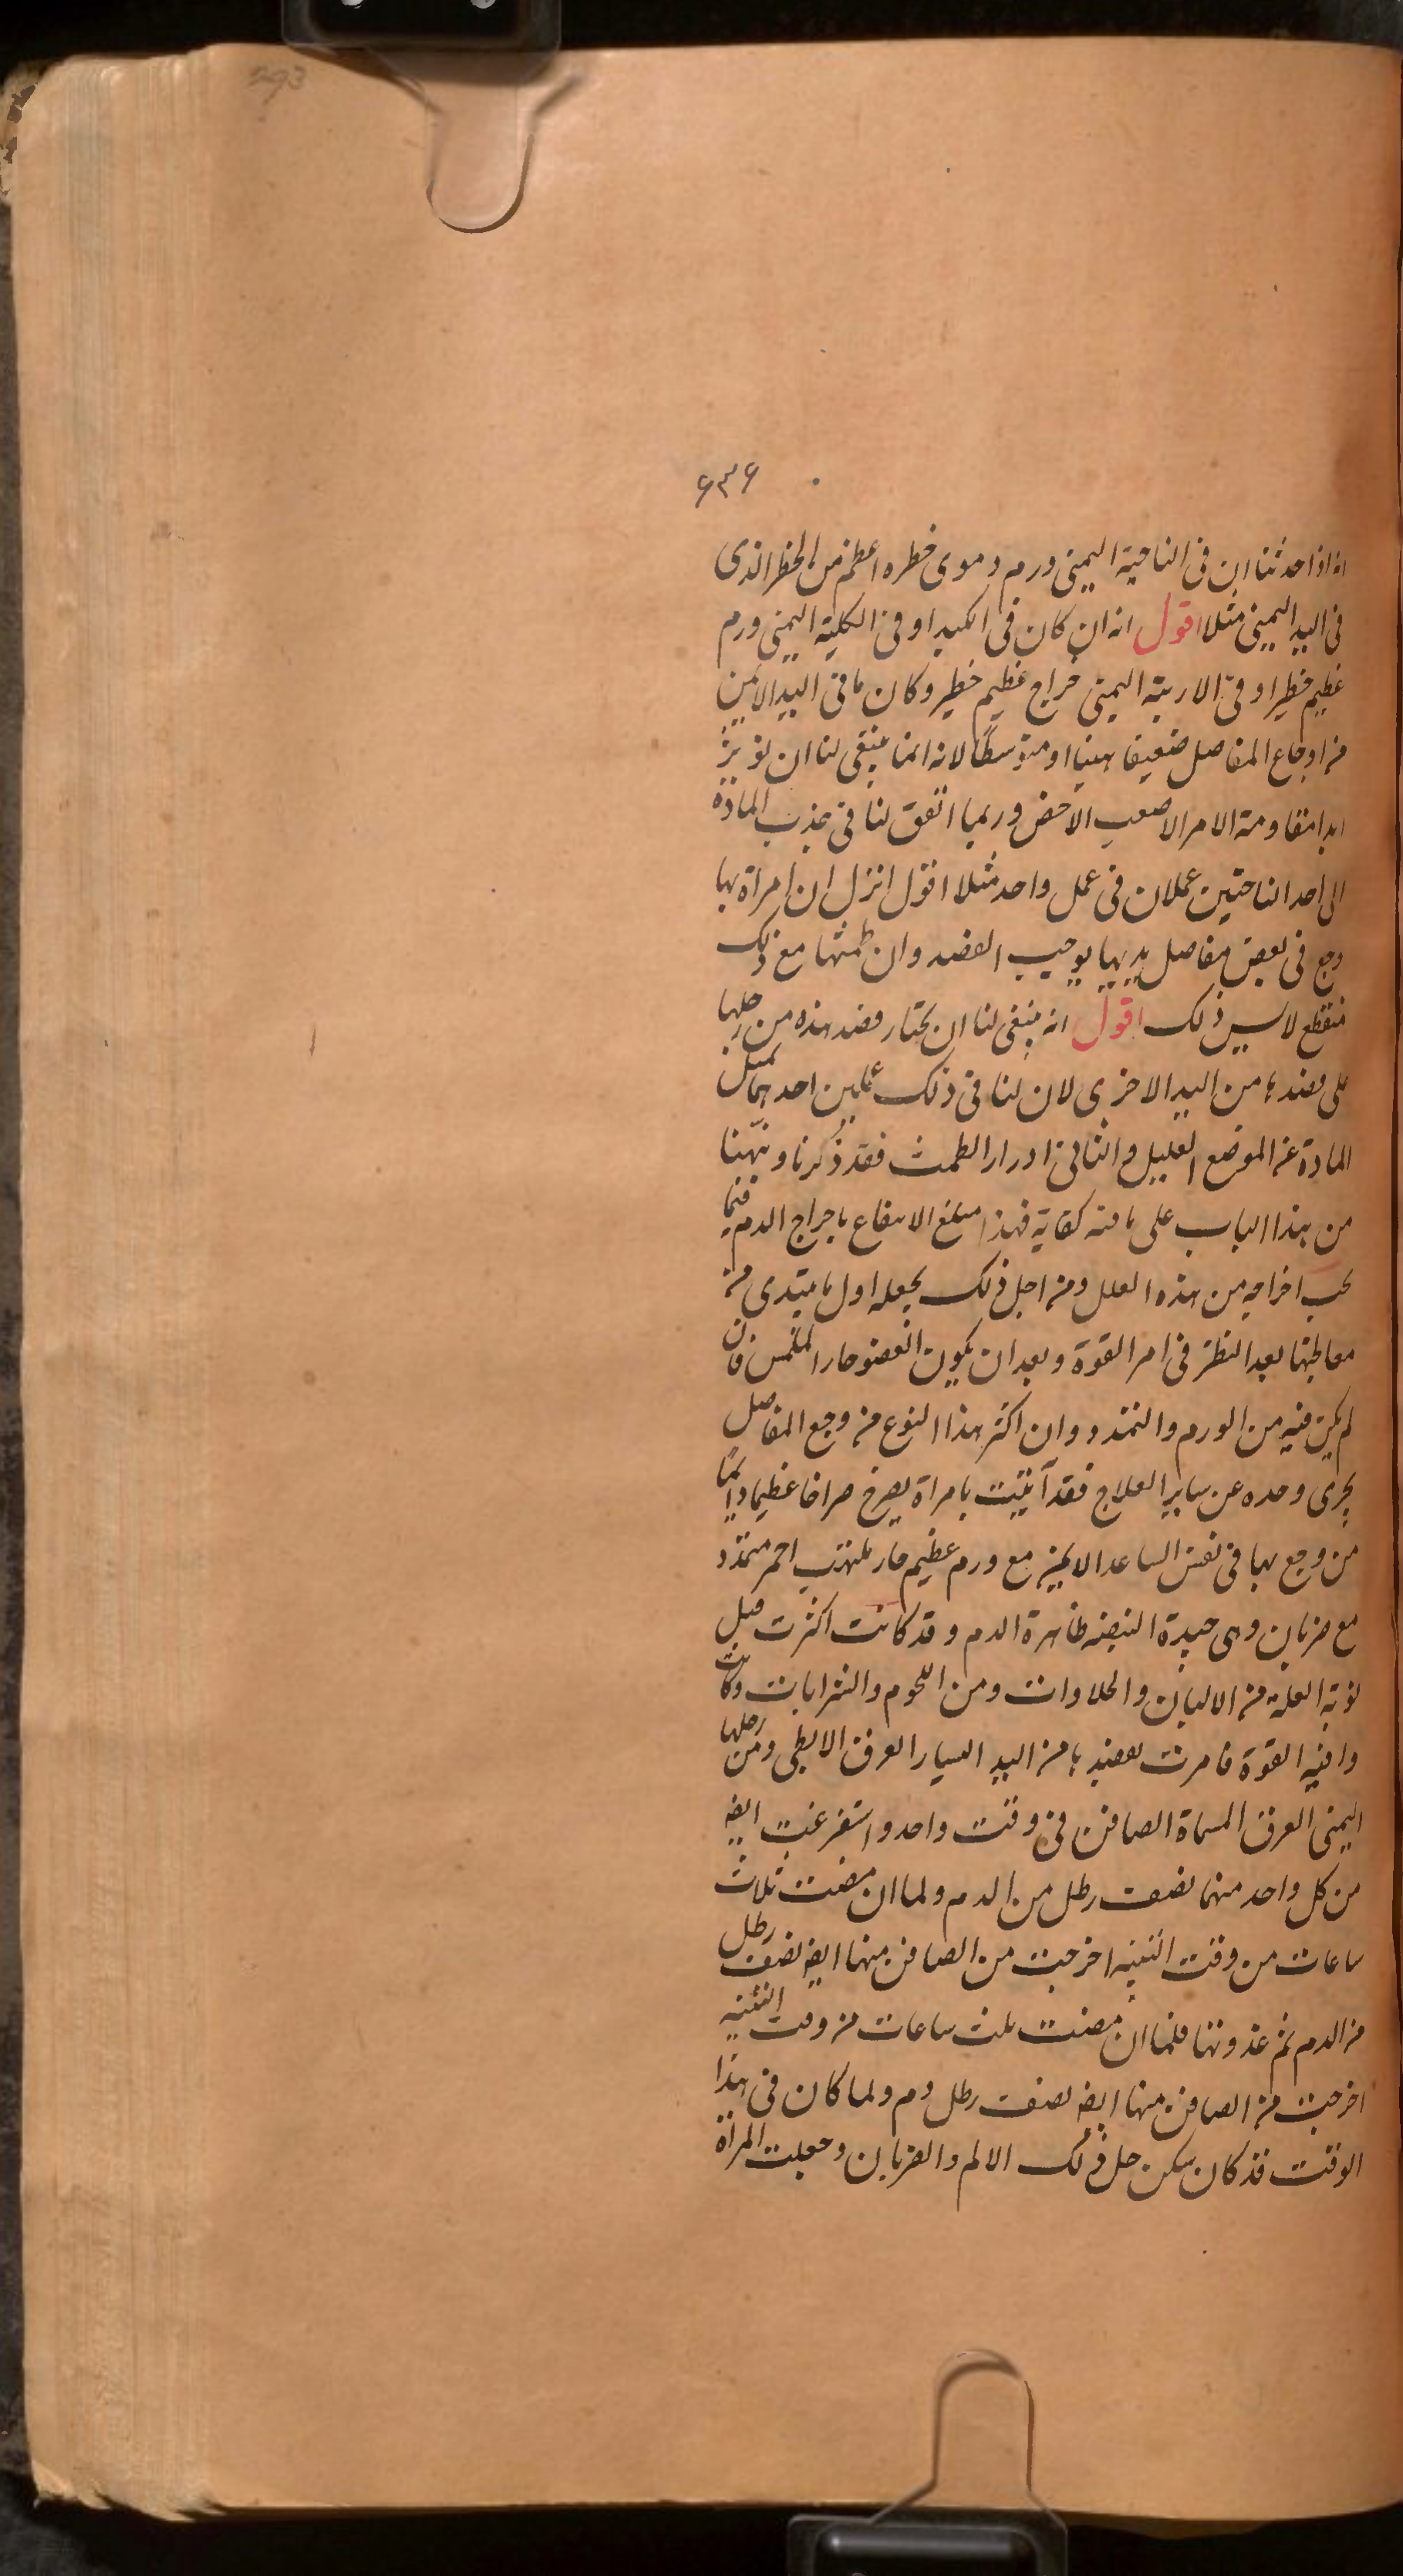 293
۶۳۶
انه اذا حدثنا ان فى الناحية اليمنى ورم دموى خطره اعظم من الخطر الذى
فى اليد اليمنى مثلا اقول انه ان كان فى الكبد او فى الكلية اليمنى ورم
عظيم خطير او فى الاربية اليمنى خراج عظيم خطير وكان ما فى اليد الايمن
من اوجاع المفاصل ضعيفا هينا او متوسطا لانه انما ينبغى لنا ان نؤثر
ابدا مقاومة الامر الاصعب الاخص وربما اتفق لنا فى جذب المادة
الى احد الناحيتين عملان فى عمل واحد مثلا اقول انزل ان امراة بها
وجع فى بعض مفاصل يديها يوجب الفصد وان طمثها مع ذلك
منقطع لا يسيل ذلك اقول انه ينبغى لنا ان نختار فصد هذه من رجلها
على فصدها من اليد الاخرى لان لنا فى ذلك عملين احدهما نميل
المادة عن الموضع العليل والثانى ادرار الطمث فقد ذكرنا ونبهنا
من هذا الباب على ما فيه كفاية فهذا مبلغ الانتفاع باخراج الدم فيما
يجب اخراجه من هذه العلل ومن اجل ذلك نجعله اول ما نبتدى من
معالجتها بعد النظر فى امر القوة وبعد ان يكون العضو حار الملمس فان
لم يكن فيه من الورم والتمدد وان اكثر هذا النوع من وجع المفاصل
يجزى وحده عن ساير العلاج فقد آتيت بامراة يصرخ صراخا عظيما دايما
من وجع بها فى نفس الساعد الايمن مع ورم عظيم حار ملتهب احمر متمدد
مع ضربان وهى جيدة النبض ظاهرة الدم وقد كانت اكثرت قبل
نوبة العلة من الالبان والحلاوات ومن اللحوم والشرابات وكانت
وافية القوة فامرت بفصدها من اليد اليسار العرق الابطى ومن رجلها
اليمنى العرق المسماة الصافن فى وقت واحد واستفرغت ايضا
من كل واحد منهما نصف رطل من الدم ولما ان مضت ثلاث
ساعات من وقت الثنيه اخرجت من الصافن منها ايضا نصف رطل
من الدم ثم غذوتها فلما ان مضت ثلث ساعات من وقت التثنيه
اخرجت من الصافن منها ايضا نصف رطل دم ولما كان فى هذا
الوقت قد كان سكن جل ذلك الالم والضربان وجعلت المراة